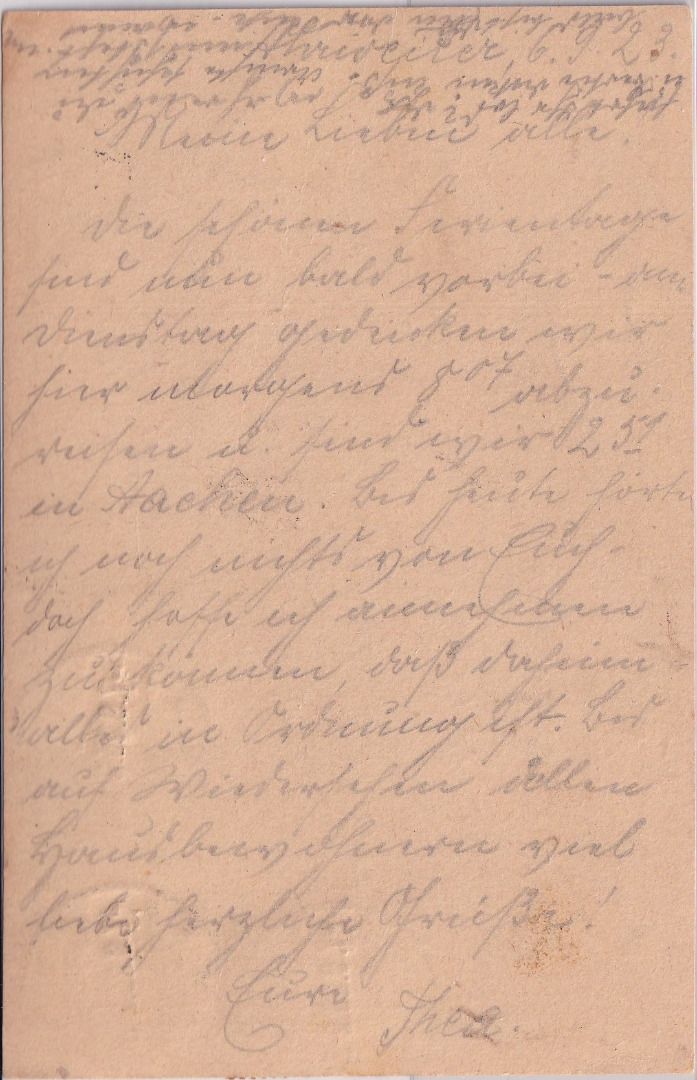 6. 9. 23.
Meine Lieben alle.
Die schönen Ferientage
sind nun bald vorbei - am
Dienstag gedenken wir
hier morgens 8 07 abzu-
reisen u. sind wir 2 51
in Aachen. Bis heute hörte
ich noch nichts von Euch -
doch hoffe ich annehmen
zu können, daß daheim
alles in Ordnung ist. Bis
auf Wiedersehen allen
Hausbewohnern viel
liebe herzliche Grüße!
Eure
Thea.